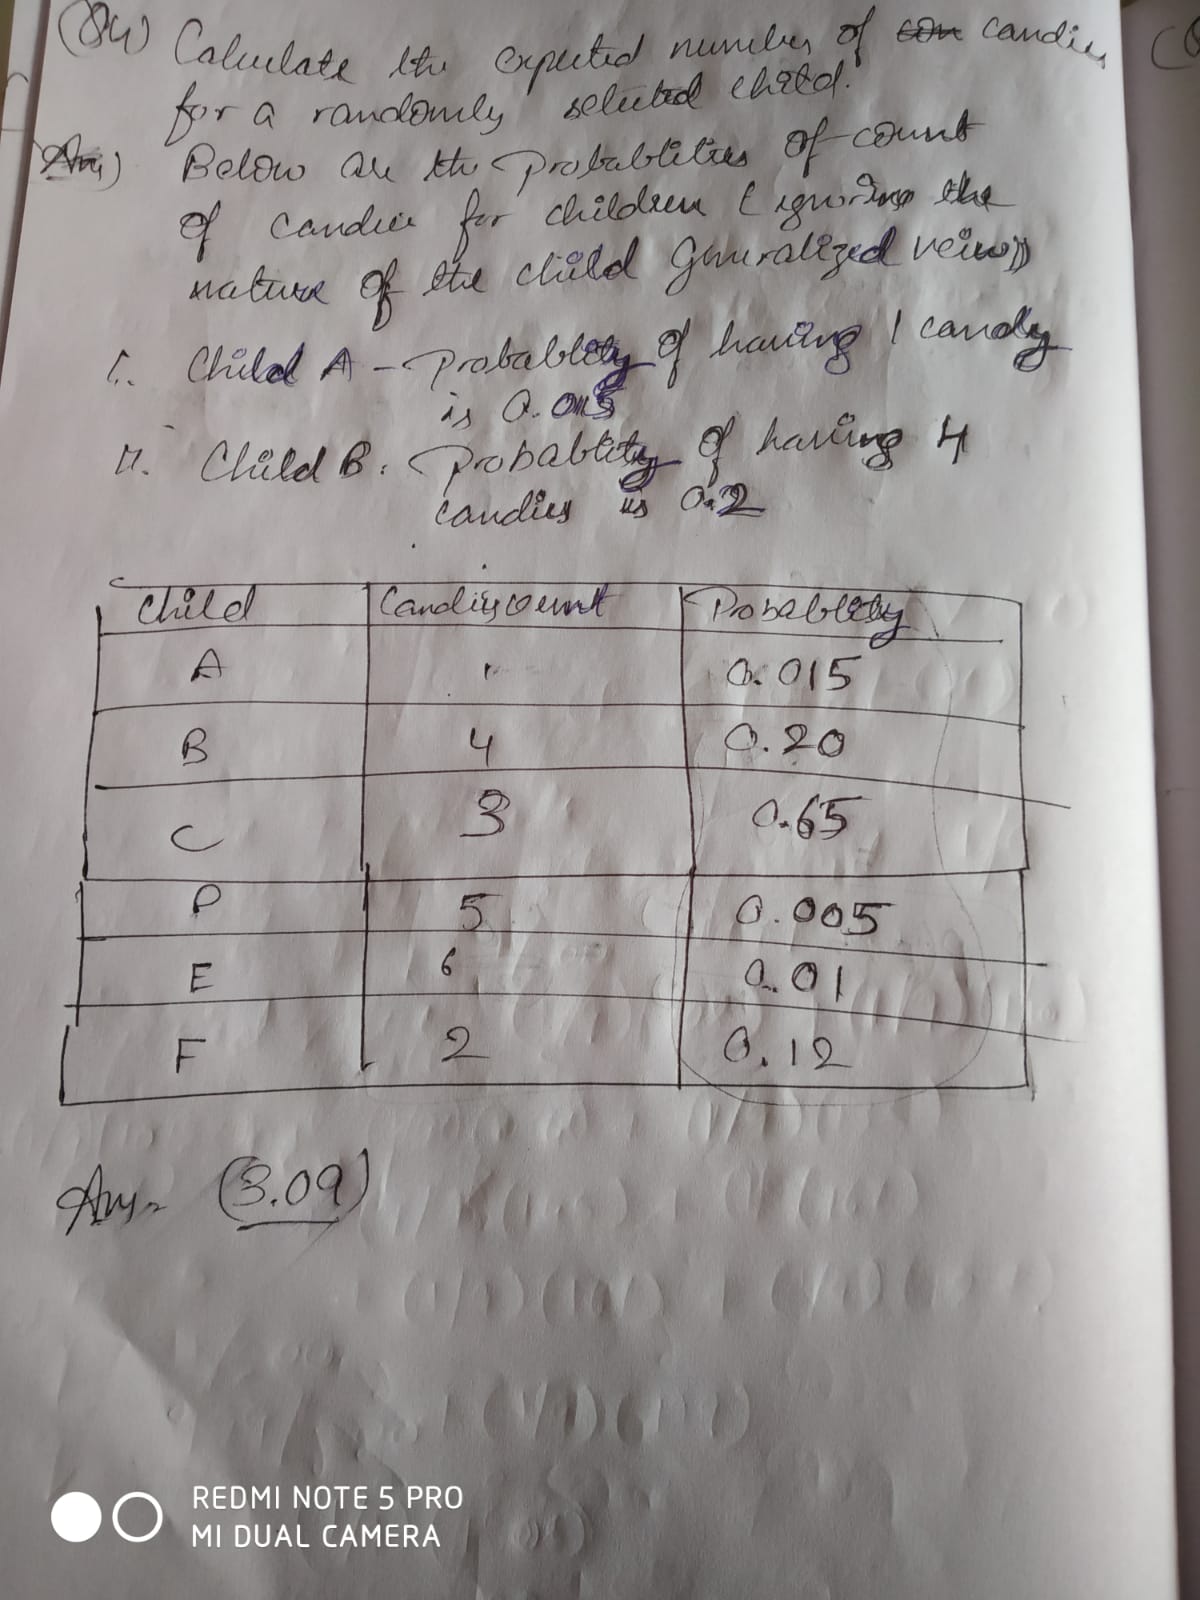 (Q4) Calculate the expected number of con candies
for a randomly selected child.
Ans) Below are the probablities of count
of candies for children (ignoring the
nature of the child Generalized veiw))
i. Child A - Probablity of having 1 candy
is 0.015
ii. Child B: Probablity of having 4
candies is 0.2
Child Candies count Probablity
A 1 0.015
B 4 0.20
C 3 0.65
D 5 0.005
E 6 0.01
F 2 0.12
Ans = (3.09)
REDMI NOTE 5 PRO
MI DUAL CAMERA